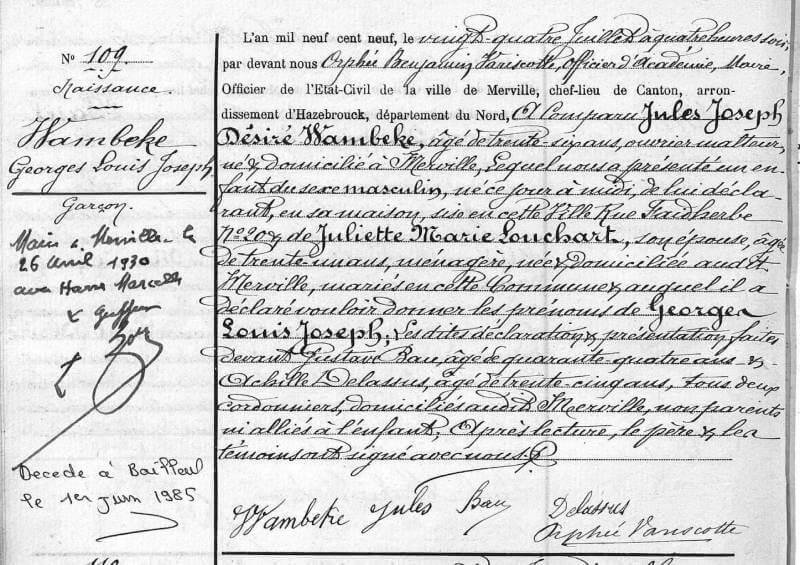 N° 109.
Naissance.
Wambeke
Georges Louis Joseph
Garçon.
Marié à Merville le
26 avril 1930
avec Hans Marcelle
Le Greffier
Décédé à Bailleul
le 1er Juin 1985
L'an mil neuf cent neuf, le vingt-quatre Juillet à quatre heures soir
par devant nous Orphée Benjamin Vanscotte, Officier d'Académie, Maire
Officier de l'Etat-Civil de la ville de Merville, chef-lieu de Canton, arron-
dissement d'Hazebrouck, département du Nord, A Comparu Jules Joseph
Désiré Wambeke, âgé de trente-six ans, ouvrier malteur,
né & domicilié à Merville, Lequel nous a présenté un en-
fant du sexe masculin, né ce jour à midi, de lui décla-
rant, en sa maison, sise en cette Ville Rue Faidherbe
n° 20 & de Juliette Marie Louchart, son épouse, âgée
de trente-un ans, ménagère, née & domiciliée audit
Merville, mariés en cette Commune & auquel il a
déclaré vouloir donner les prénoms de Georges
Louis Joseph; Les dites déclaration & présentation faites
devant Gustave Bau, âgé de quarante-quatre ans &
Achille Delassus, âgé de trente-cinq ans, tous deux
cordonniers, domiciliés audit Merville, non parents
ni alliés à l'enfant, Après lecture, le père & les
témoins ont signé avec nous.
Wambeke Jules Bau Delassus
Orphée Vanscotte